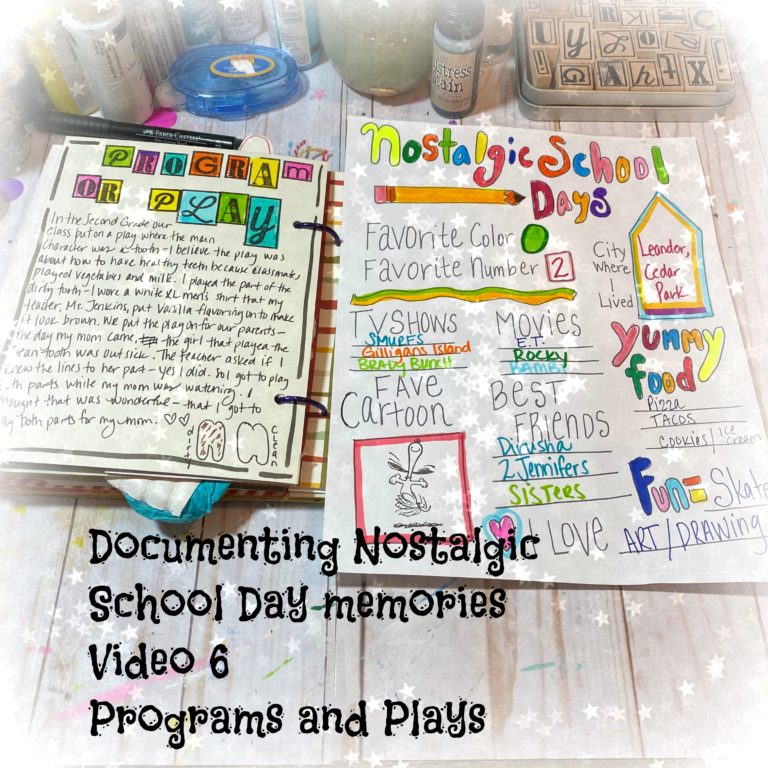 FABER-CASTELL
Distress
Stain
PROGRAM
OR PLAY
In the Second Grade our
class put on a play where the main
character was a tooth - I believe the play was
about how to have healthy teeth because classmates
played vegetables and milk. I played the part of the
dirty tooth - I wore a white XL men's shirt that my
teacher, Mr. Jenkins, put Vanilla flavoring on to make
it look brown. We put the play on for our parents -
the day my mom came, the girl that played the
clean tooth was out sick. The teacher asked if I
knew the lines to her part - yes I did. So I got to play
both parts while my mom was watching. I
thought that was wonderful - that I got to
play both parts for my mom.
dirty
clean
Nostalgic School
Days
Favorite Color
Favorite Number 2
City
Where
I
Lived
Leander,
Cedar
Park
TV SHOWS
SMURFS
Gilligans Island
BRADY BUNCH
MOVIES
E.T.
ROCKY
BAMBI
YUMMY
food
Pizza
TACOS
COOKIES/ice cream
FAVE
Cartoon
BEST
FRIENDS
Dirusha
2 Jennifers
SISTERS
Fun= Skate
I LOVE ART/DRAWING
Documenting Nostalgic
School Day memories
Video 6
Programs and Plays